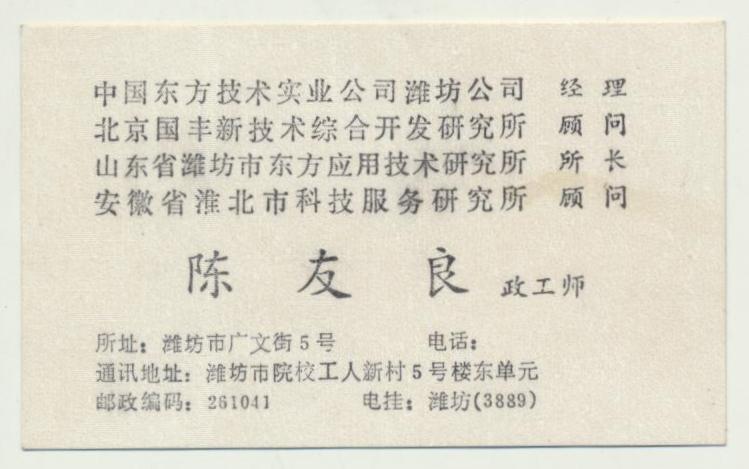 中国东方技术实业公司潍坊公司 经理
北京国丰新技术综合开发研究所 顾问
山东省潍坊市东方应用技术研究所 所长
安徽省淮北市科技服务研究所 顾问
陈友良 政工师
所址：潍坊市广文街5号 电话：
通讯地址：潍坊市院校工人新村5号楼东单元
邮政编码：261041 电挂：潍坊(3889)